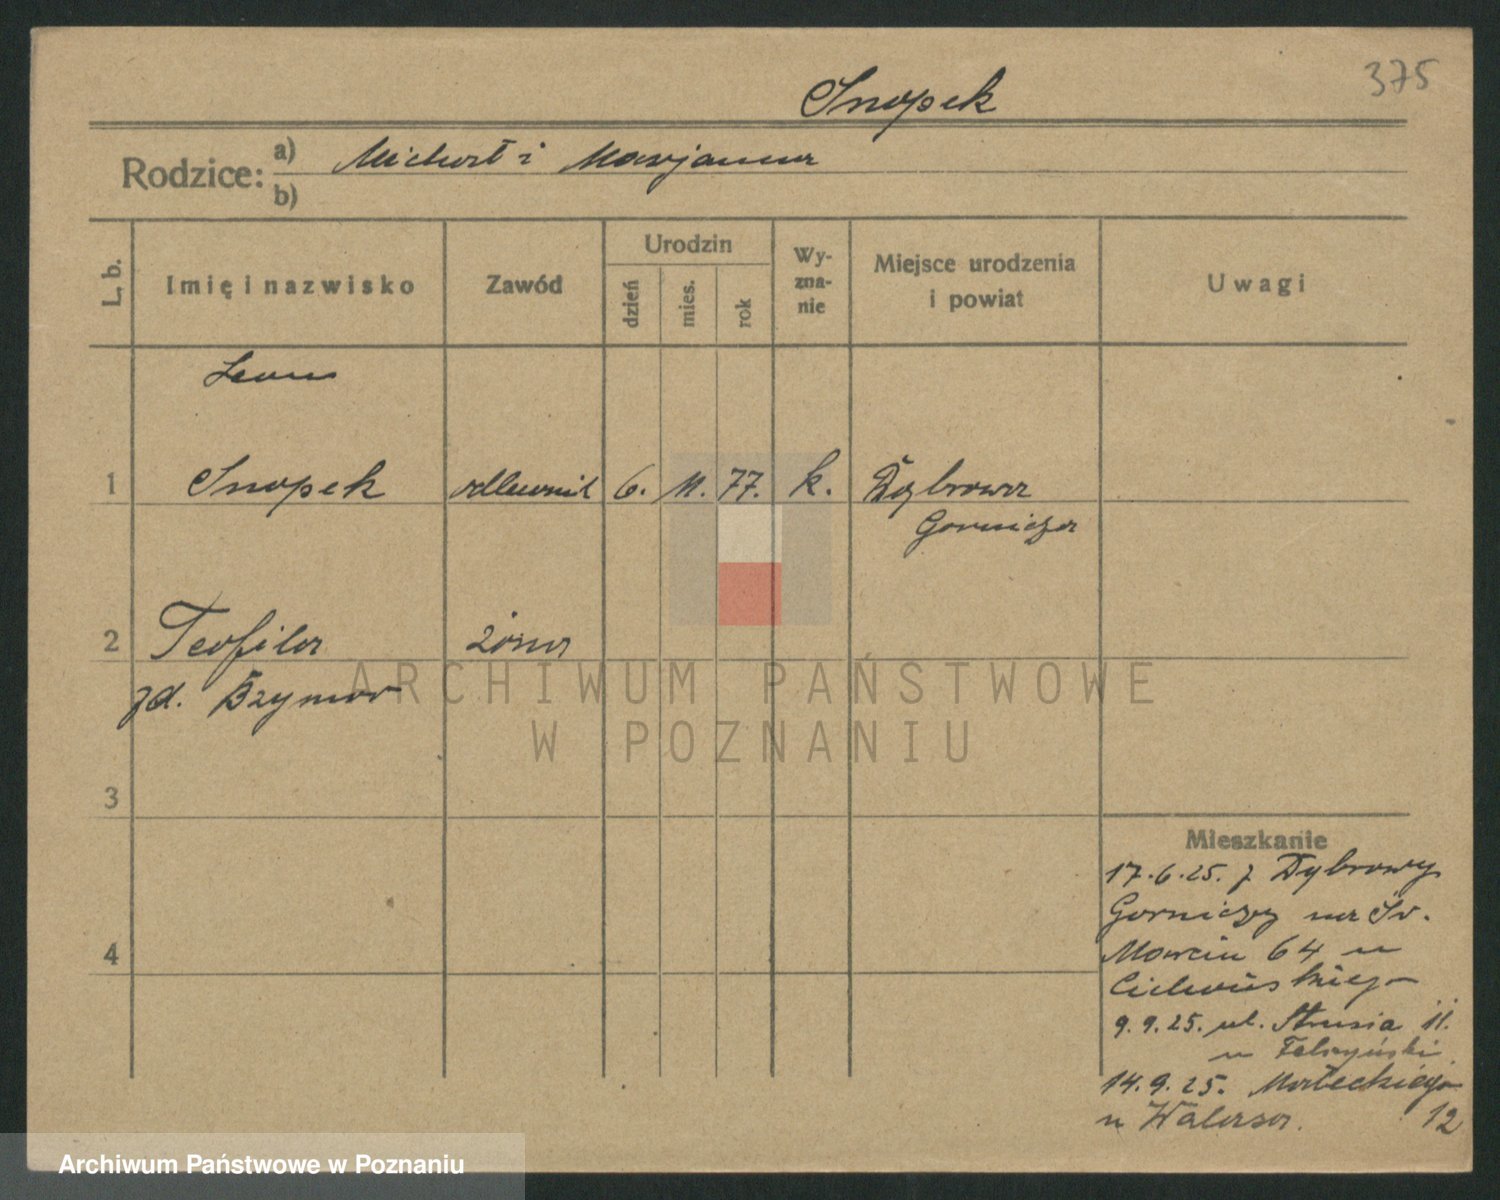 375
Snopek
Rodzice: a) Michał i Marjanna
b)
L. b. Imię i nazwisko Zawód Urodzin dzień mies. rok Wyznanie Miejsce urodzenia i powiat Uwagi
Leon
1 Snopek odlewnik 6. 11. 77. k. Dąbrowa
Gornicza
2 Teofila żona
zd.
ARCHIWUM PAŃSTWOWE
W POZNANIU
3
Mieszkanie
17.6.25. z Dąbrowy
Gorniczej na Św.
4 Marcin 64 u
9.9.25. ul. Strusia 11.
u
14.9.25. Małeckiego
u 12
Archiwum Państwowe w Poznaniu